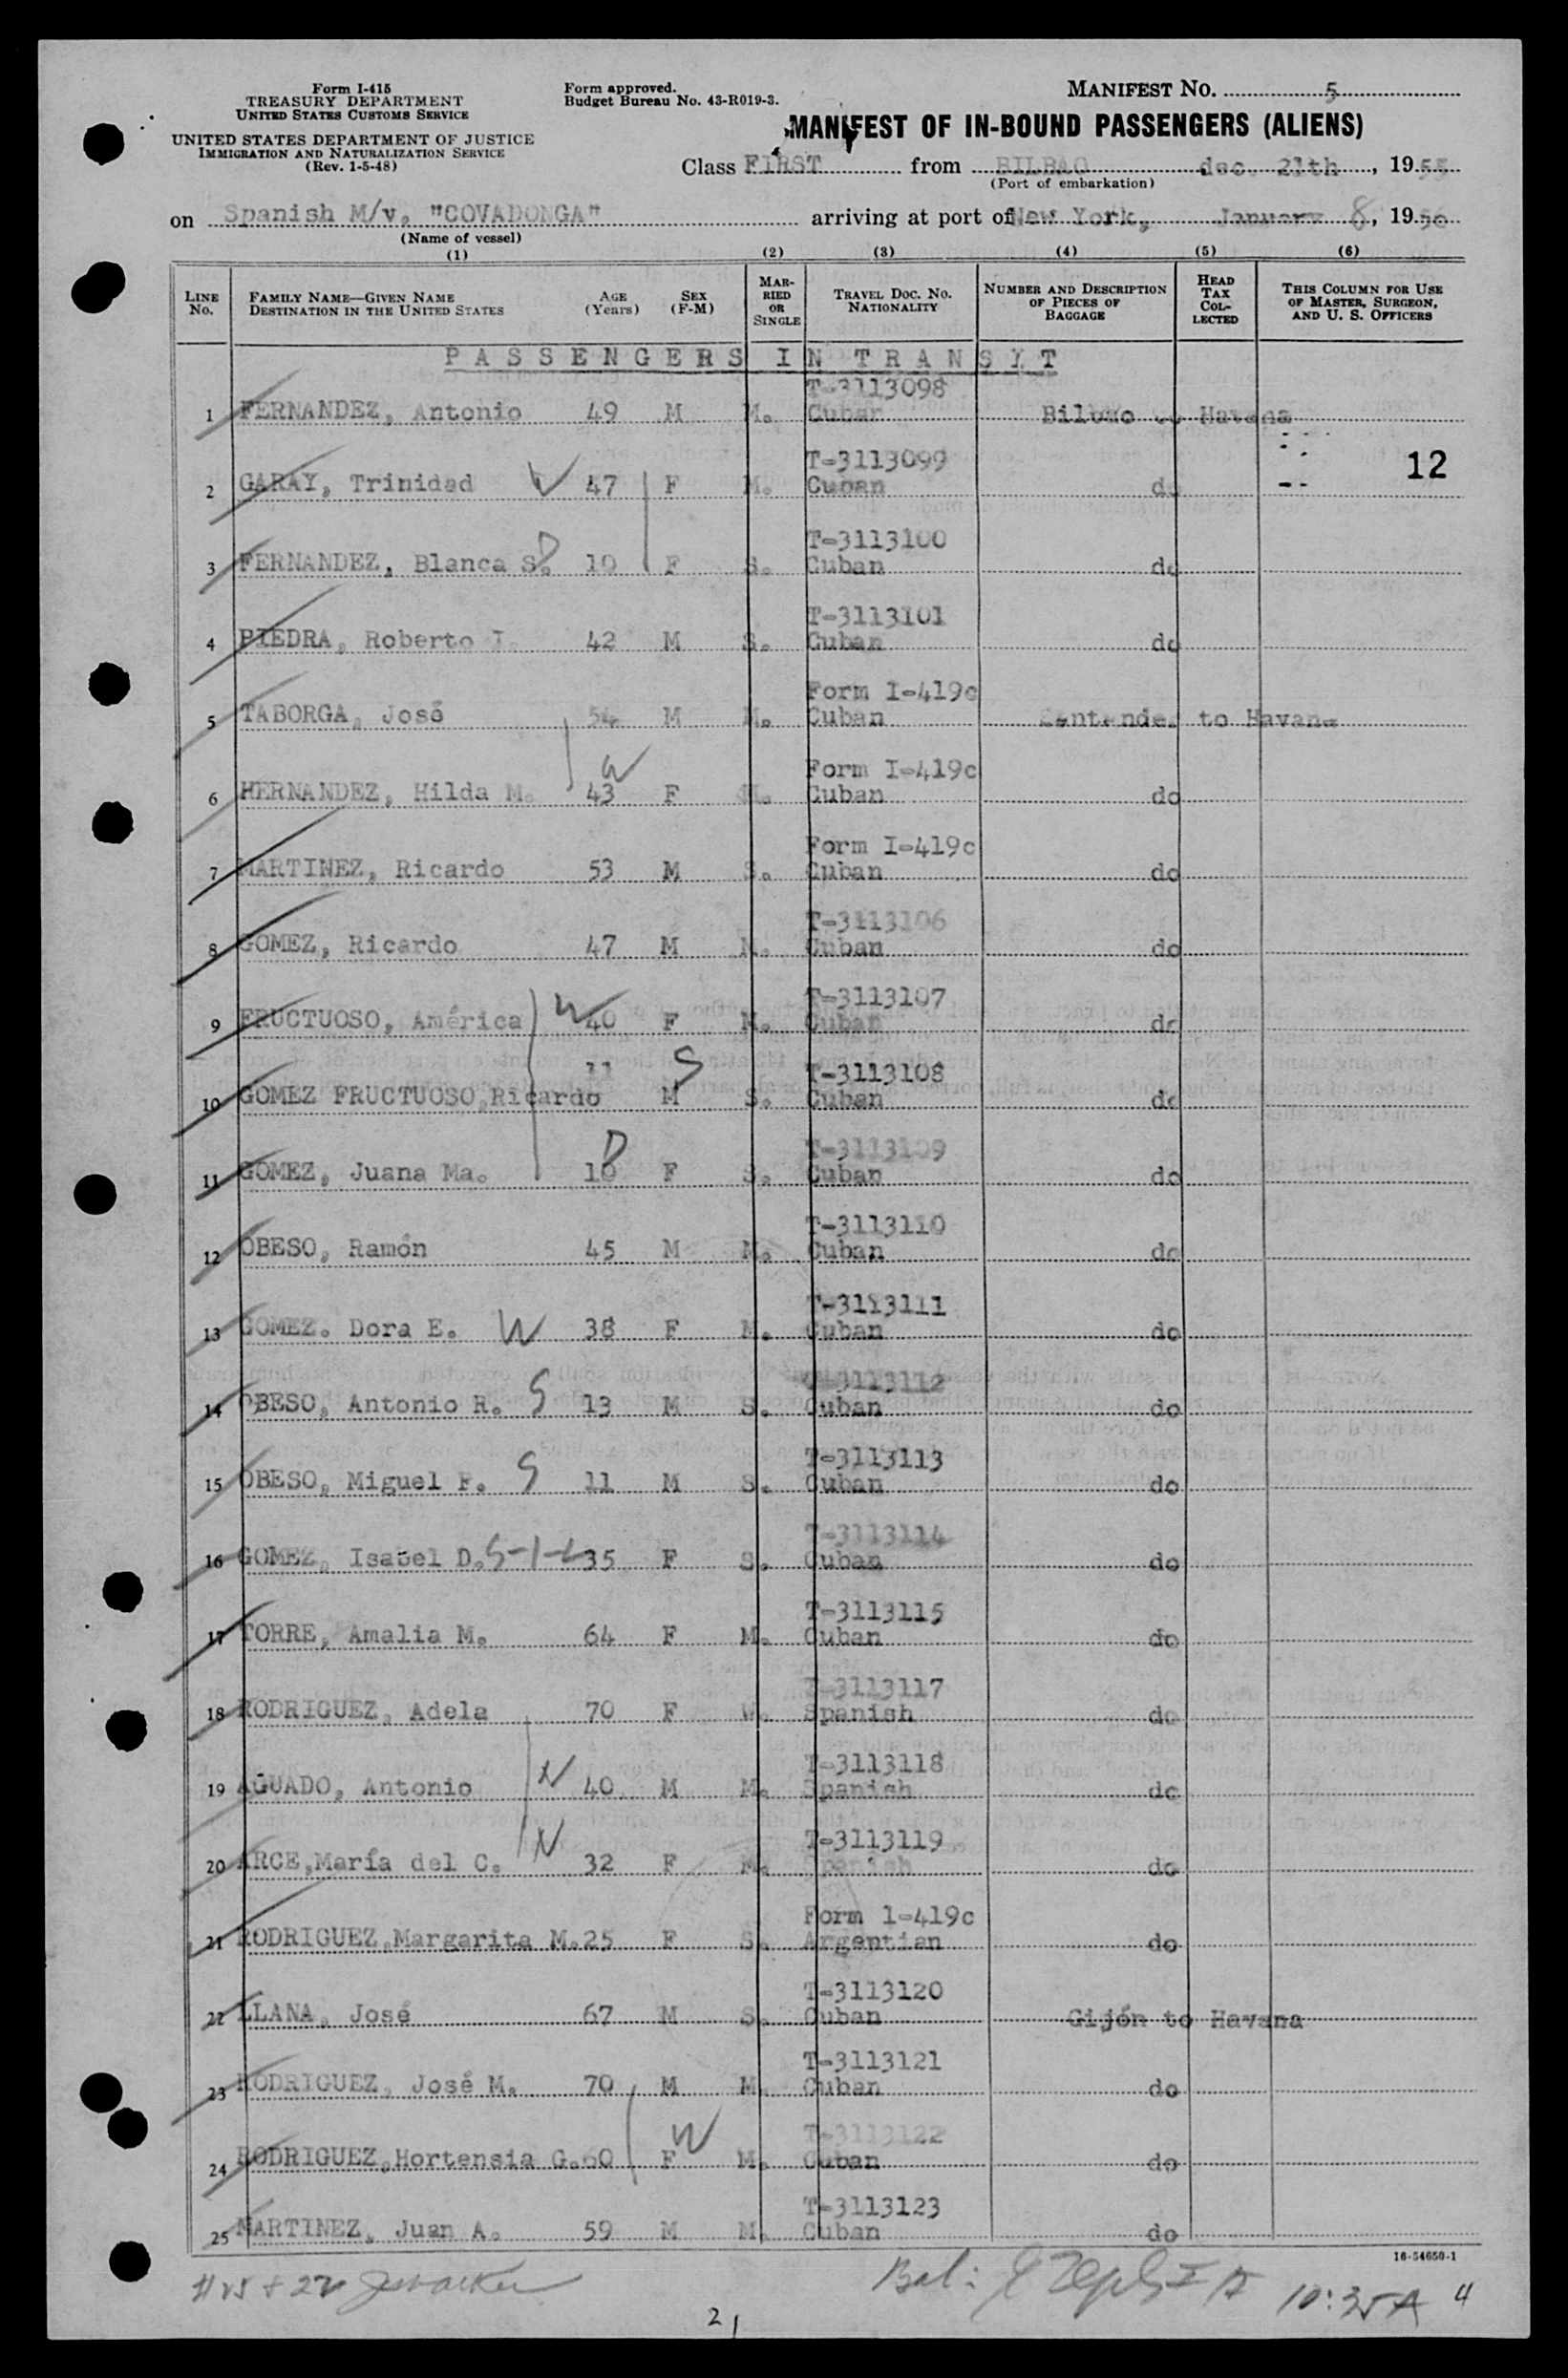 Form I-415
TREASURY DEPARTMENT
UNITED STATES CUSTOMS SERVICE
UNITED STATES DEPARTMENT OF JUSTICE
IMMIGRATION AND NATURALIZATION SERVICE
(Rev. 1-5-48)
Form approved.
Budget Bureau No. 43-R019-3.
MANIFEST NO. 5
MANIFEST OF IN-BOUND PASSENGERS (ALIENS)
Class FIRST from BILBAO dec. 21th, 1955
(Port of embarkation)
on Spanish M/v. "COVADONGA" arriving at port of New York, January 8, 1956
(Name of vessel)
(1) (2) (3) (4) (5) (6)
LINE No. FAMILY NAME—GIVEN NAME DESTINATION IN THE UNITED STATES AGE (Years) SEX (F-M) MARRIED OR SINGLE TRAVEL DOC. NO. NATIONALITY NUMBER AND DESCRIPTION OF PIECES OF BAGGAGE HEAD TAX COLLECTED THIS COLUMN FOR USE OF MASTER, SURGEON, AND U. S. OFFICERS
PASSENGERS IN TRANSIT
T-3113098
1 FERNANDEZ, Antonio 49 M M. Cuban Bilbao to Havana
T-3113099 12
2 GARAY, Trinidad W 47 F M. Cuban do
T-3113100
3 FERNANDEZ, Blanca S. D 10 F S. Cuban do
T-3113101
4 PIEDRA, Roberto I. 42 M S. Cuban do
Form I-419c
5 TABORGA, José 54 M M. Cuban Santander to Havana
W Form I-419c
6 HERNANDEZ, Hilda M. 43 F M. Cuban do
Form I-419c
7 MARTINEZ, Ricardo 53 M S. Cuban do
T-3113106
8 GOMEZ, Ricardo 47 M M. Cuban do
T-3113107
9 FRUCTUOSO, América W 40 F M. Cuban do
11 S T-3113108
10 GOMEZ FRUCTUOSO, Ricardo M S. Cuban do
D T-3113109
11 GOMEZ, Juana Ma. 10 F S. Cuban do
T-3113110
12 OBESO, Ramón 45 M M. Cuban do
T-3113111
13 GOMEZ. Dora E. W 38 F M. Cuban do
T-3113112
14 OBESO, Antonio R. S 13 M S. Cuban do
T-3113113
15 OBESO, Miguel F. S 11 M S. Cuban do
T-3113114
16 GOMEZ, Isabel D. S-1-L 35 F S. Cuban do
T-3113115
17 TORRE, Amalia M. 64 F M. Cuban do
T-3113117
18 RODRIGUEZ, Adela 70 F W. Spanish do
T-3113118
19 AGUADO, Antonio N 40 M M. Spanish do
T-3113119
20 ARCE, María del C. N 32 F M. Spanish do
Form 1-419c
21 RODRIGUEZ, Margarita M. 25 F S. Argentian do
T-3113120
22 LLANA, José 67 M S. Cuban Gijón to Havana
T-3113121
23 RODRIGUEZ, José M. 70 M M. Cuban do
T-3113122
24 RODRIGUEZ, Hortensia G. 60 W F M. Cuban do
T-3113123
25 MARTINEZ, Juan A. 59 M M. Cuban do
16-54650-1
Bal: 10:35A 4
21